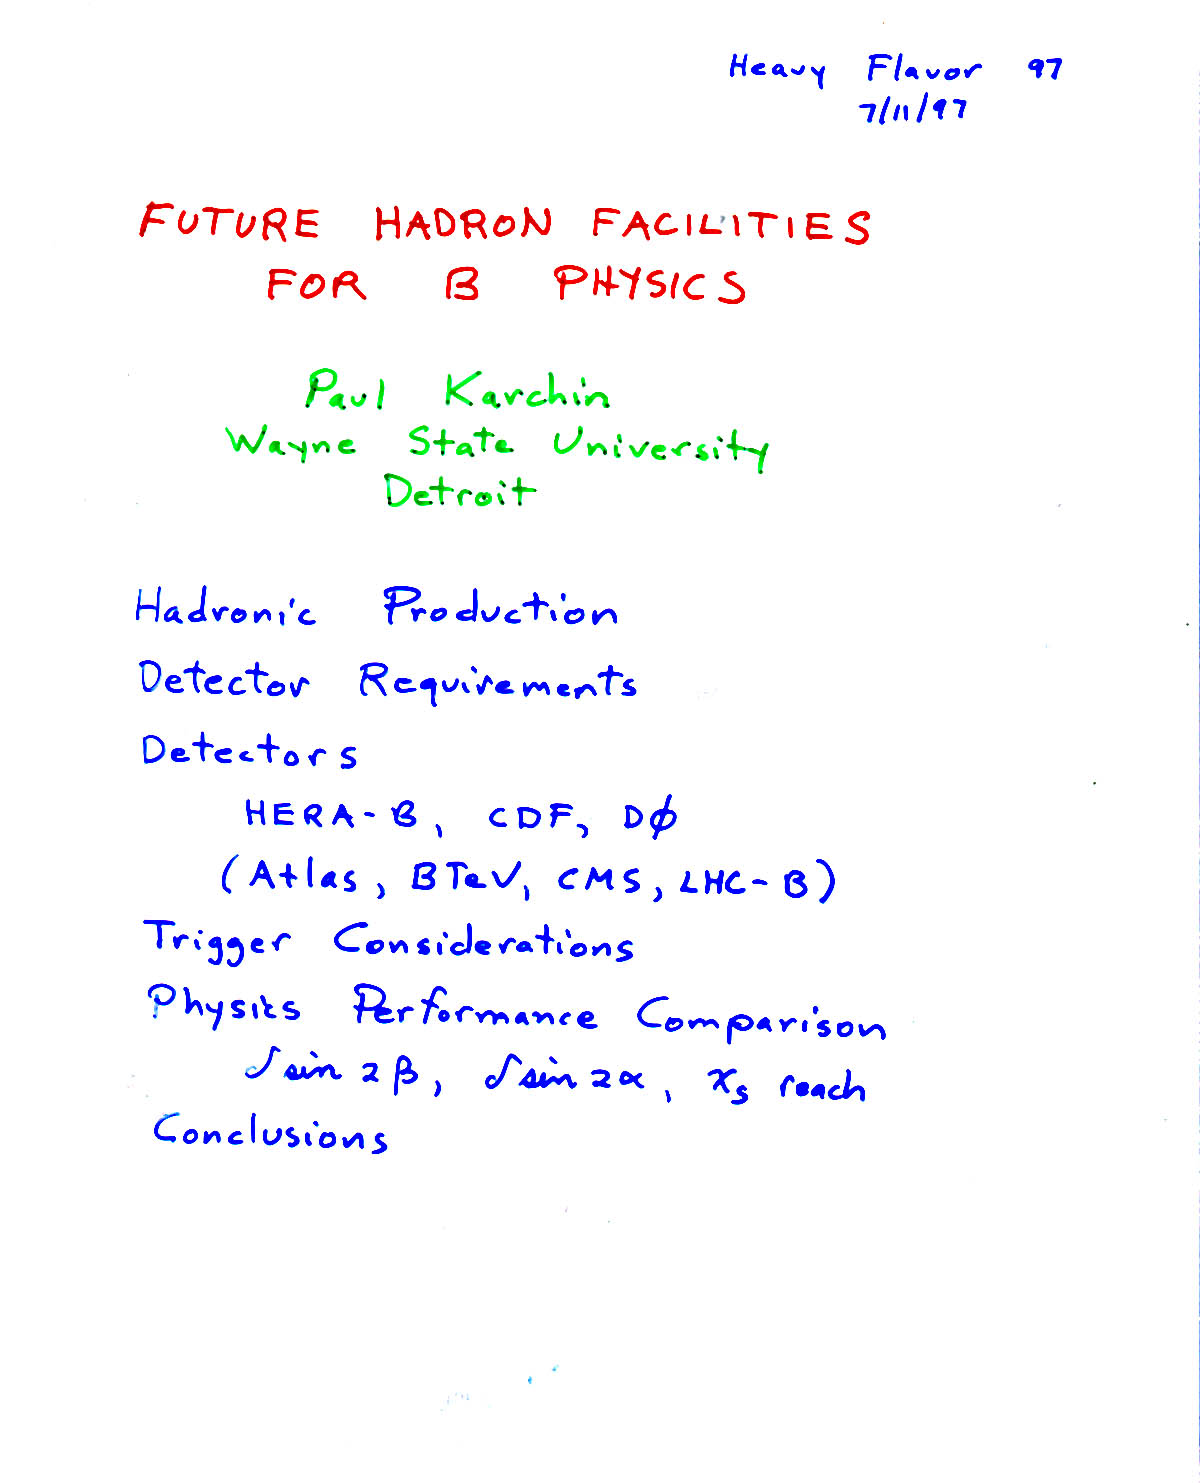 Heavy Flavor 97
7/11/97
FUTURE HADRON FACILITIES
FOR B PHYSICS
Paul Karchin
Wayne State University
Detroit
Hadronic Production
Detector Requirements
Detectors
HERA-B, CDF, DØ
(Atlas, BTeV, CMS, LHC-B)
Trigger Considerations
Physics Performance Comparison
δ sin 2β, δ sin 2α, xₛ reach
Conclusions